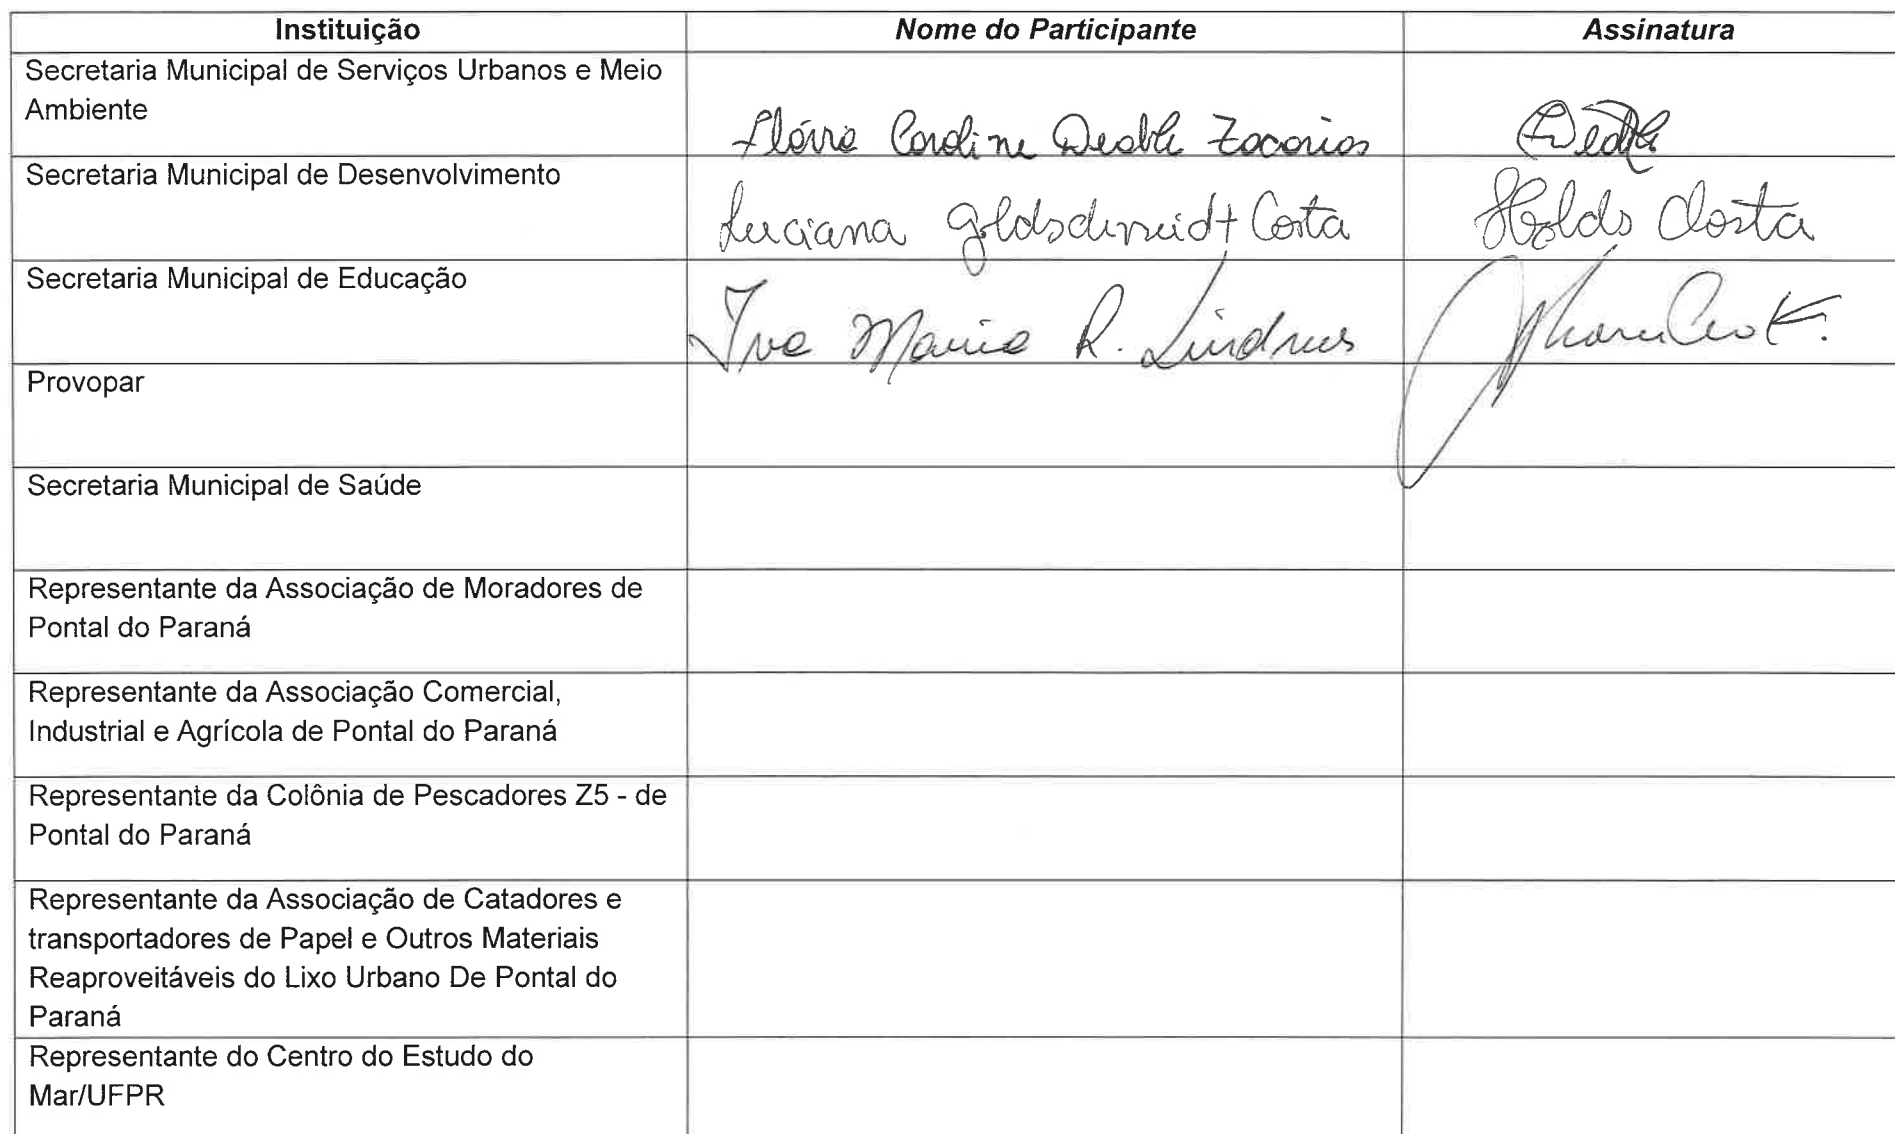 Instituição Nome do Participante Assinatura
Secretaria Municipal de Serviços Urbanos e Meio
Ambiente
Flávia Caroline Deable Zacarias
Secretaria Municipal de Desenvolvimento
Luciana Goldschmidt Costa Costa
Secretaria Municipal de Educação
Iva Maria R.
Provopar
Secretaria Municipal de Saúde
Representante da Associação de Moradores de
Pontal do Paraná
Representante da Associação Comercial,
Industrial e Agrícola de Pontal do Paraná
Representante da Colônia de Pescadores Z5 - de
Pontal do Paraná
Representante da Associação de Catadores e
transportadores de Papel e Outros Materiais
Reaproveitáveis do Lixo Urbano De Pontal do
Paraná
Representante do Centro do Estudo do
Mar/UFPR